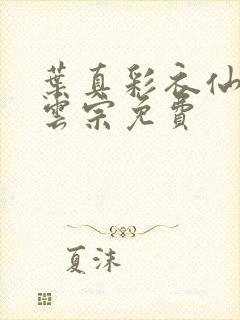 葉真彩衣仙
雲宗免費
夏沫